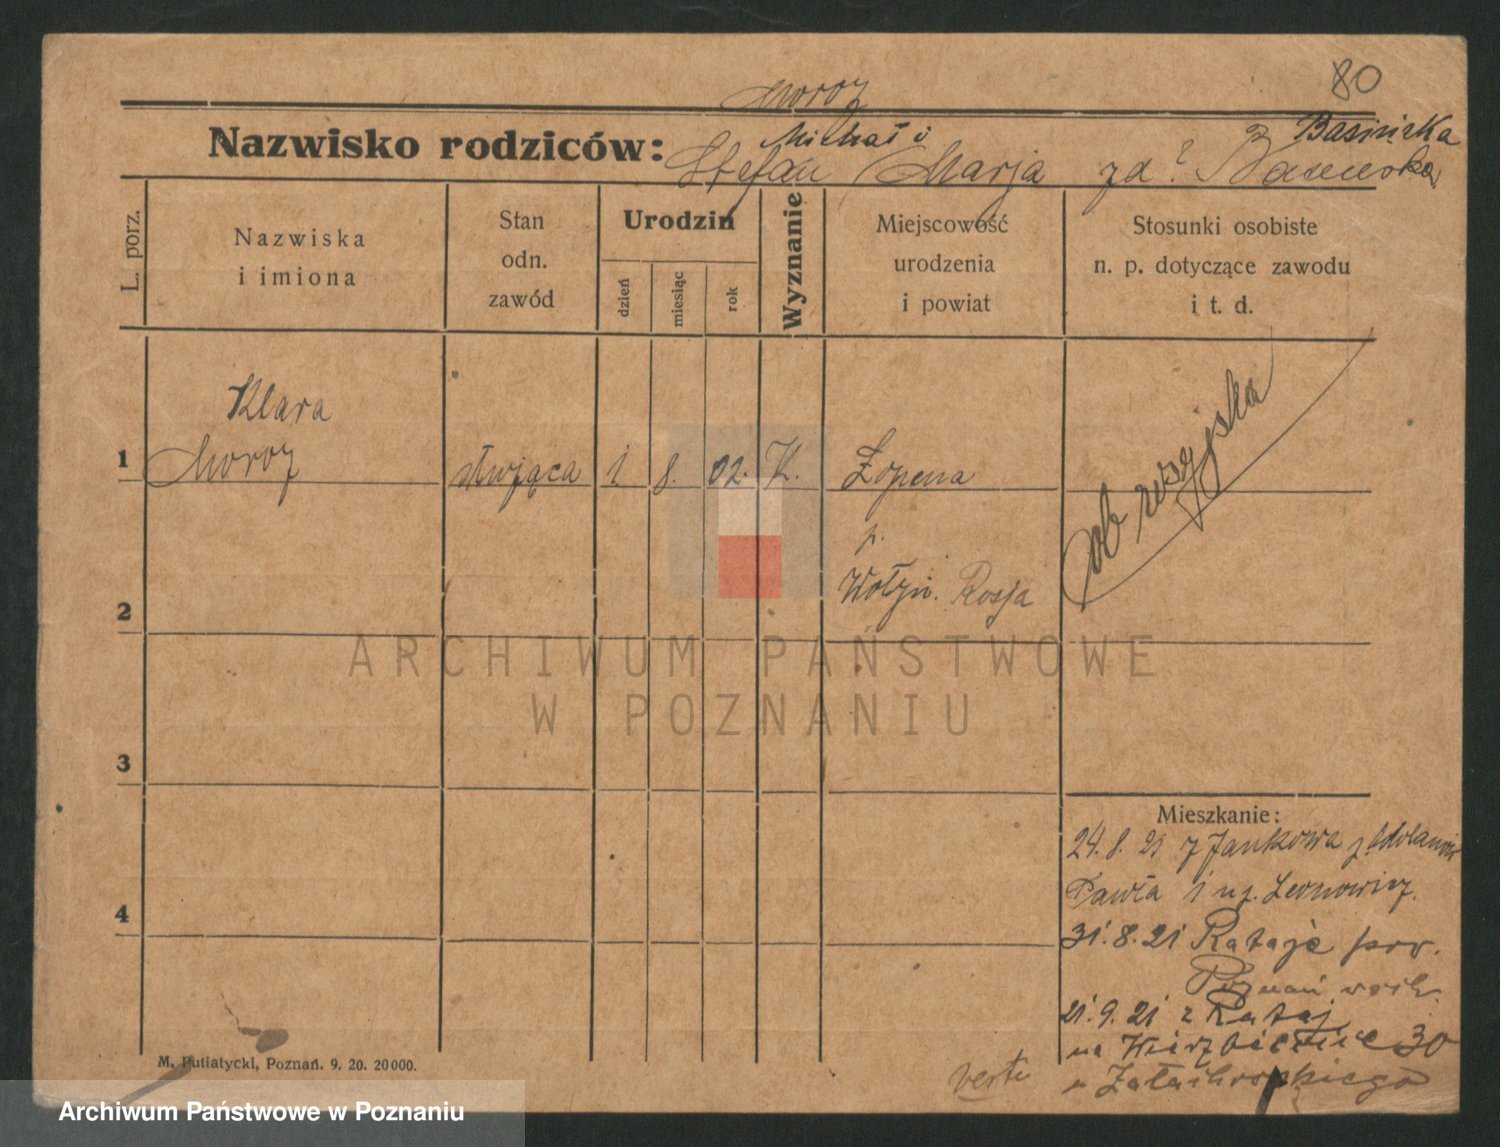 80
Moroz
Nazwisko rodziców: Stefan Marja zd?
Michał i Basińska
L. porz.
Nazwiska
i imiona
Stan
odn.
zawód
Urodzin
dzień
miesiąc
rok
Wyznanie
Miejscowość
urodzenia
i powiat
Stosunki osobiste
n. p. dotyczące zawodu
i t. d.
Klara
1 Moroz służąca 1 8. 02. K. Łopena
p.
Wołyń. Rosja
ob rosyjska
2
3
4
ARCHIWUM PAŃSTWOWE
W POZNANIU
Mieszkanie:
24. 8. 21 z Jankowa p. Odolanów
Pawła i Leonowicz.
31. 8. 21 Rataje pow.
Poznań wsch.
21. 9. 21 z Rataj
na Wierzbięcice 30
u
verte
M. Putiatycki, Poznań. 9. 20. 20000.
Archiwum Państwowe w Poznaniu